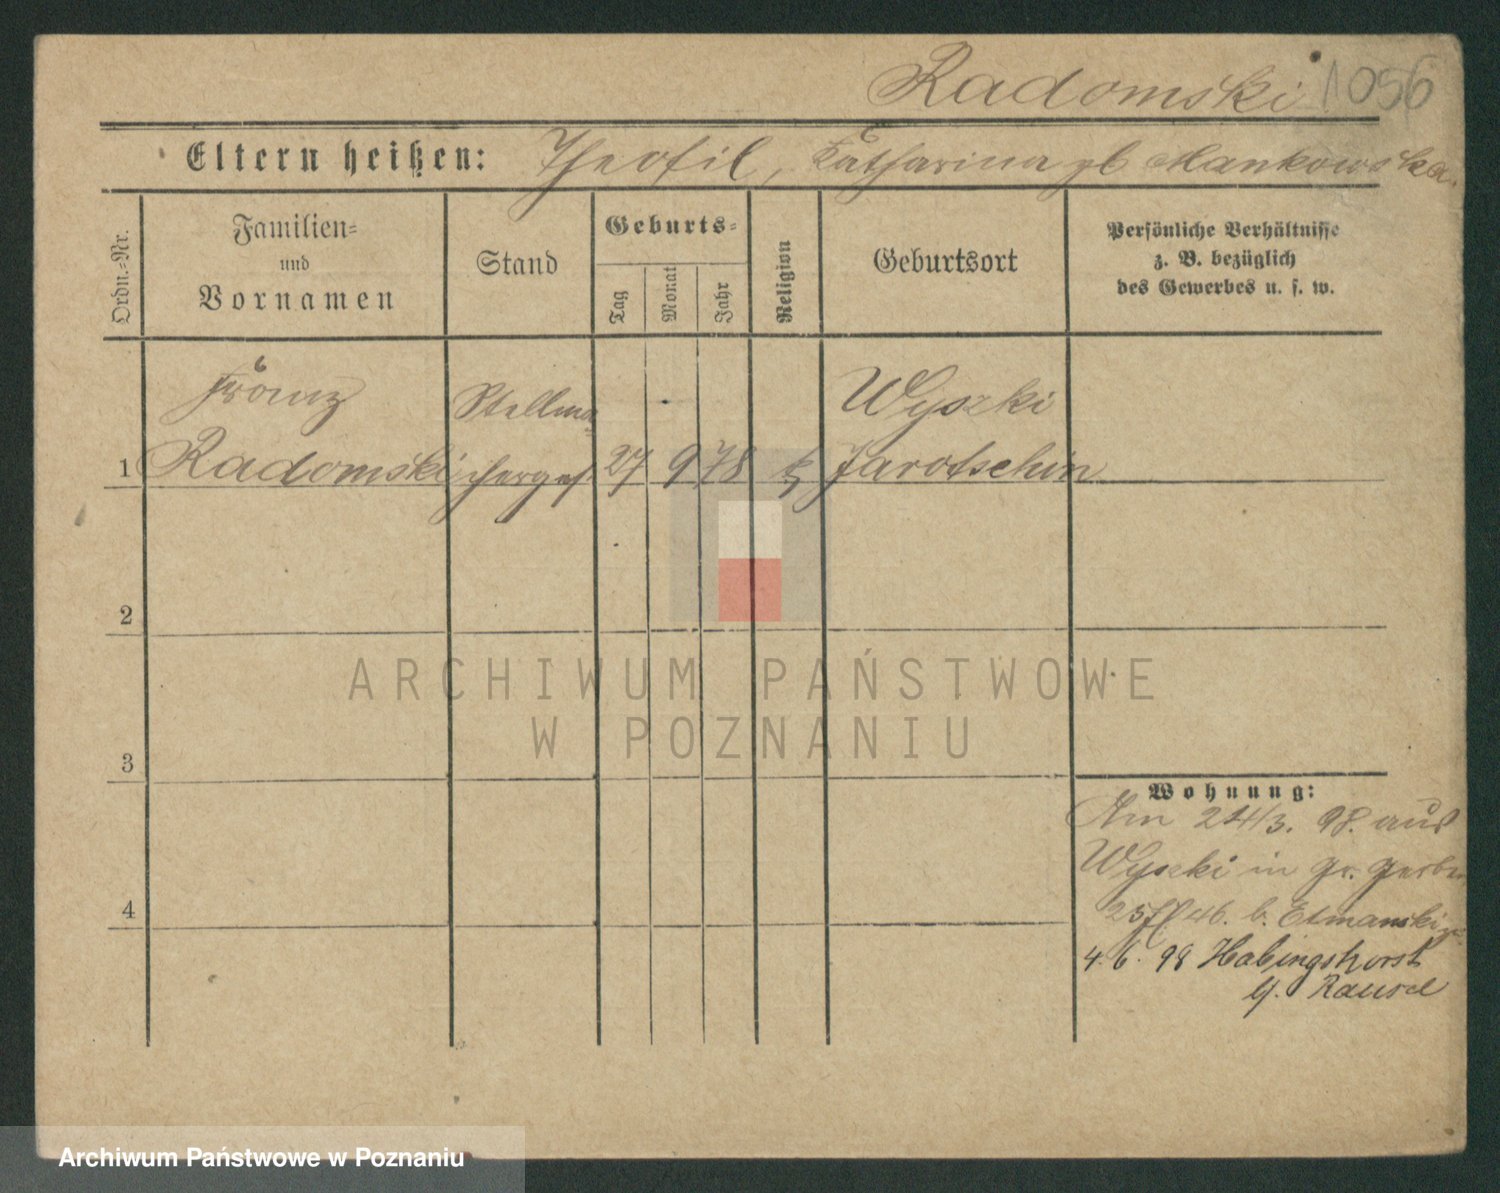 Radomski 1056
Eltern heißen: Theofil, Katharina gb Mankowska.
Ordn.-Nr.
Familien-
und
Vornamen
Stand
Geburts-
Tag
Monat
Jahr
Religion
Geburtsort
Persönliche Verhältnisse
z. B. bezüglich
des Gewerbes u. s. w.
Franz Stellma Wyszki
1 Radomski cherges. 27 9 78 k Jarotschin
2
ARCHIWUM PAŃSTWOWE
W POZNANIU
3
Wohnung:
Am 24/3. 98. aus
Wyszki in Gr. Gerber
46. b. Etmanski
4
4. 6. 98 Habingshorst
Rauxel
Archiwum Państwowe w Poznaniu